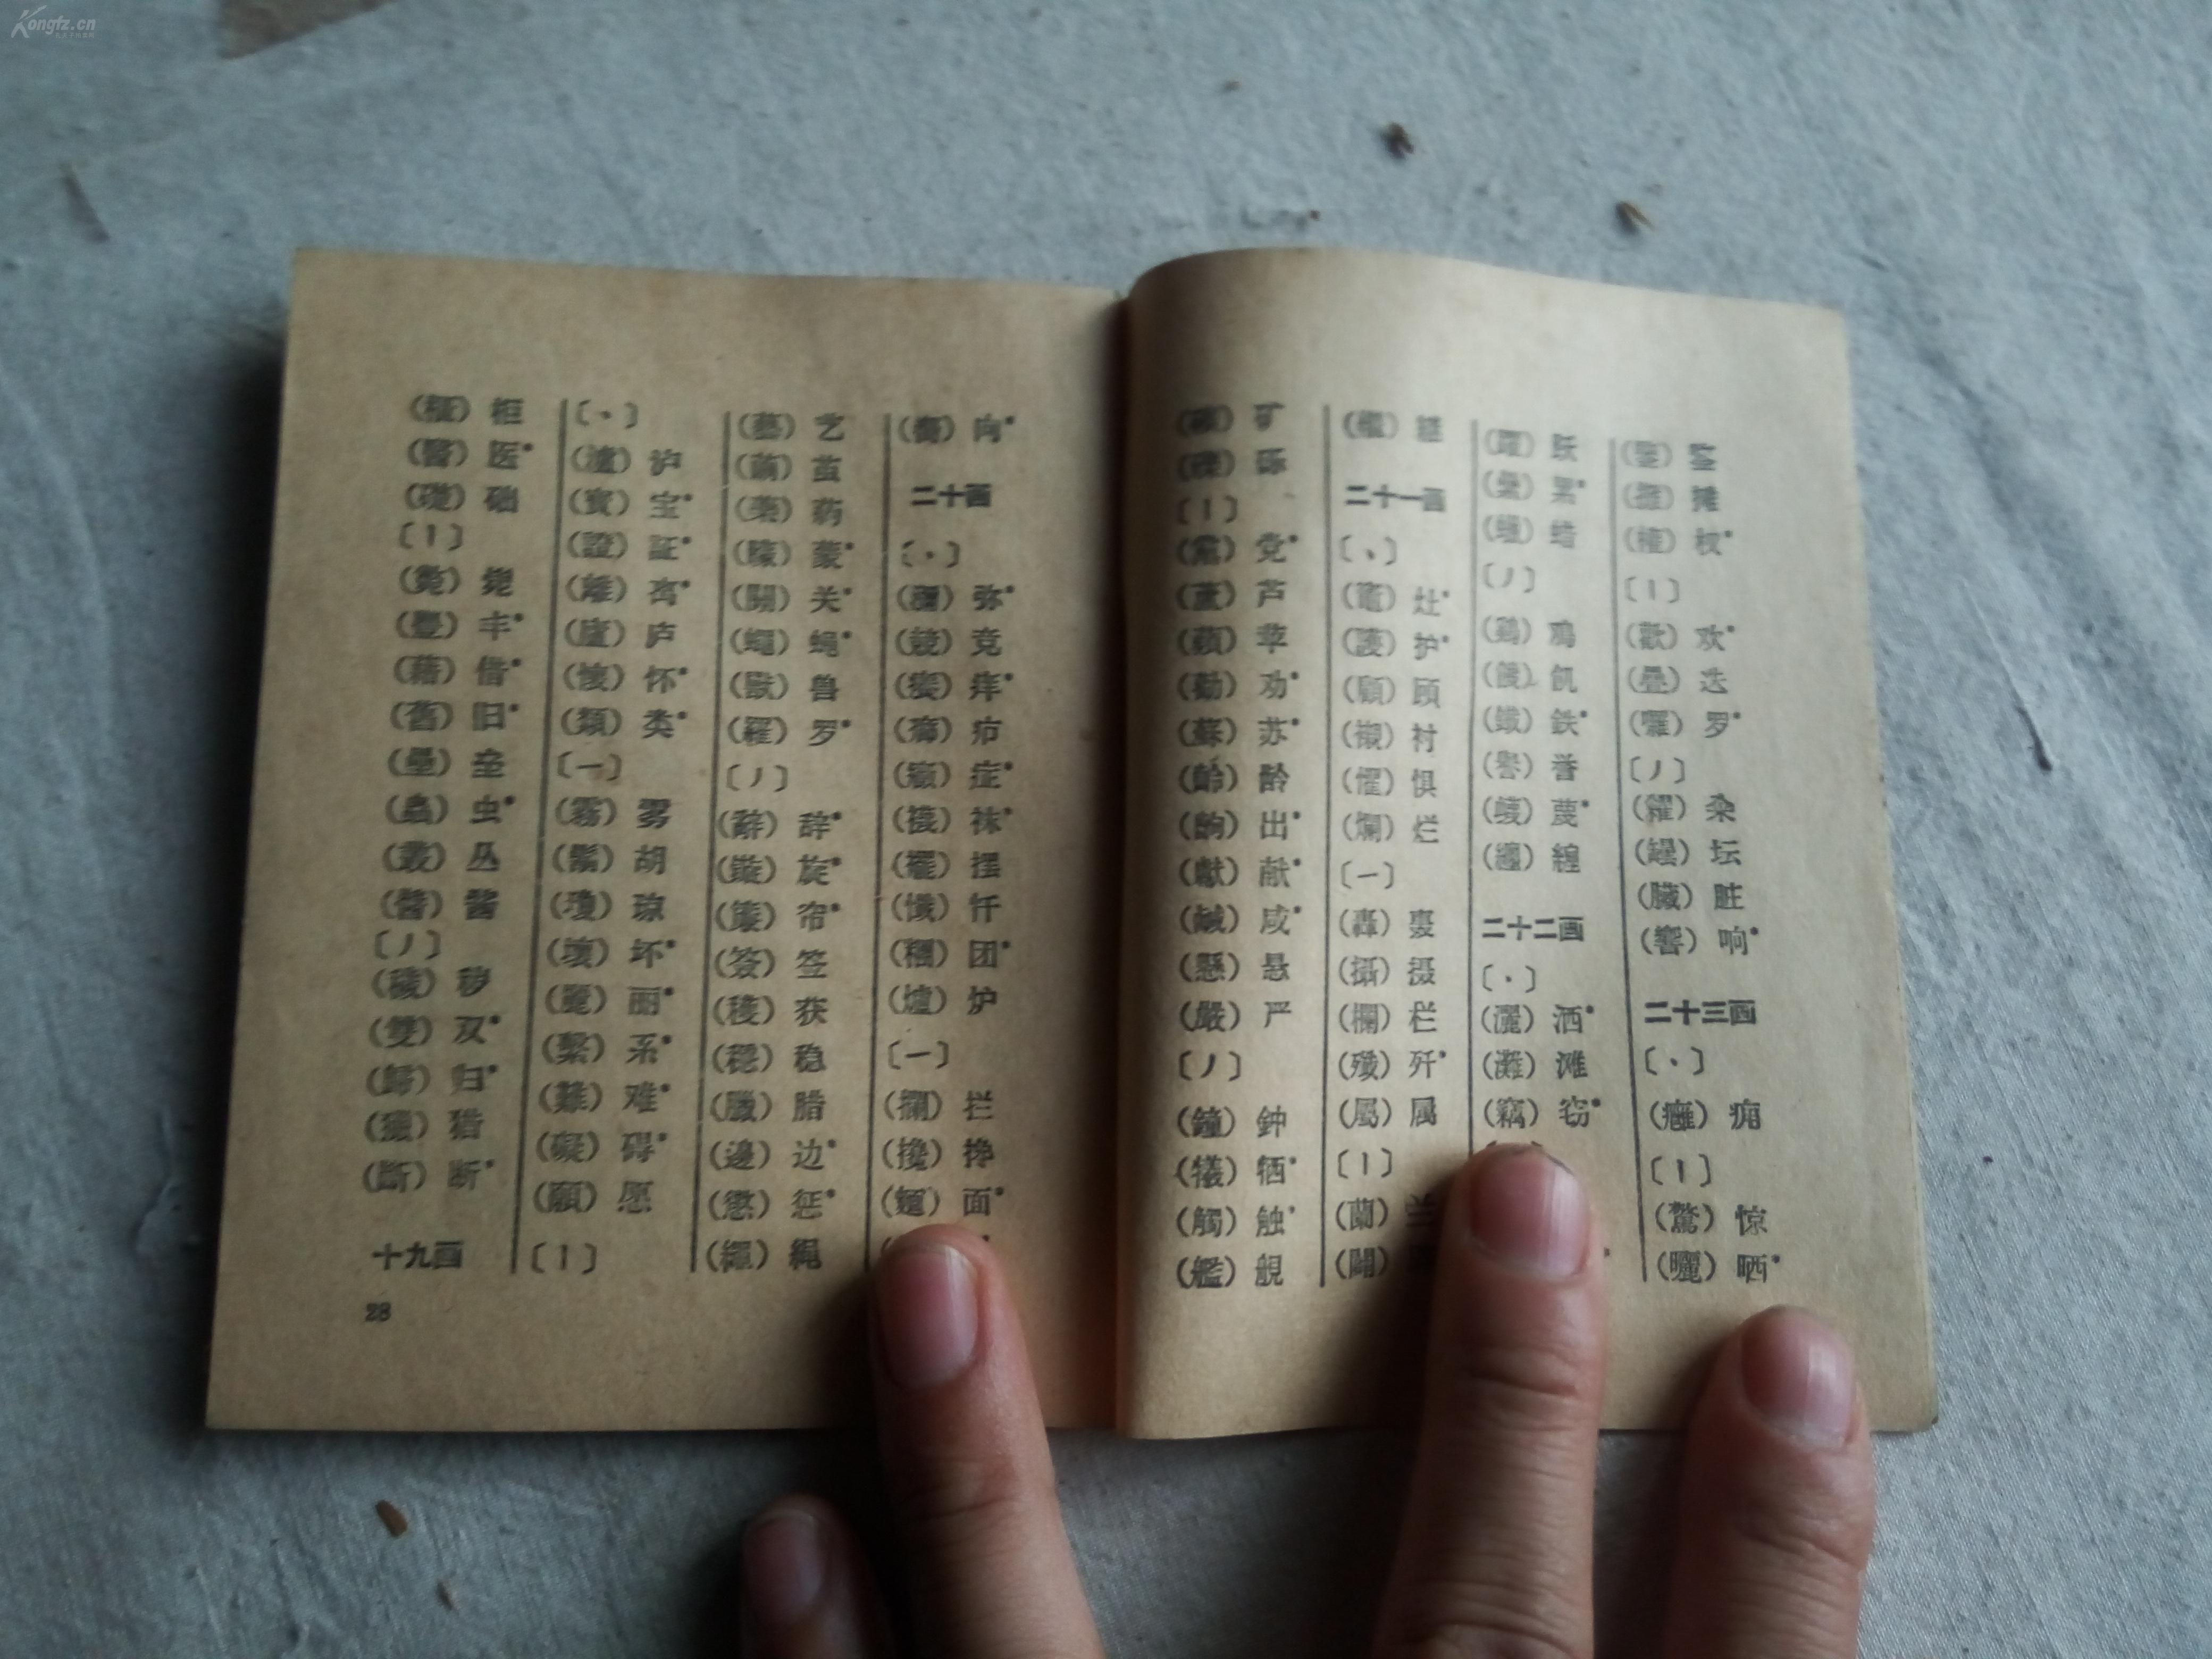 Kongfz.cn
(櫃) 柜
(醫) 医•
(礎) 础
〔丨〕
(斃) 毙
(豐) 丰•
(藉) 借•
(舊) 旧•
(壘) 垒
(蟲) 虫•
(叢) 丛
(醬) 酱
〔丿〕
(穢) 秽
(雙) 双•
(歸) 归•
(獵) 猎
(斷) 断•
十九画
28
〔丶〕
(瀘) 沪
(寳) 宝•
(證) 証•
(離) 离•
(廬) 庐
(懷) 怀•
(類) 类•
〔一〕
(霧) 雾
(鬍) 胡
(瓊) 琼
(壞) 坏•
(麗) 丽•
(繫) 系•
(難) 难•
(礙) 碍•
(願) 愿
〔丨〕
(藝) 艺
(繭) 茧
(藥) 药
(矇) 蒙•
(關) 关•
(蠅) 蝇•
(獸) 兽
(羅) 罗•
〔丿〕
(辭) 辞•
(鏇) 旋•
(簾) 帘•
(簽) 签
(穫) 获
(穩) 稳
(臘) 腊
(邊) 边•
(懲) 惩•
(繩) 绳
(嚮) 向•
二十画
〔丶〕
(瀰) 弥•
(競) 竞
(癢) 痒•
(癤) 疖
(襪) 袜•
(襬) 摆
(懺) 忏
(糰) 团•
(爐) 炉
〔一〕
(攔) 拦
(攙) 搀
(麵) 面•
(礦) 矿
(礫) 砾
〔丨〕
(黨) 党•
(蘆) 芦
(蘋) 苹
(勸) 劝•
(蘇) 苏•
(齡) 龄
(齣) 出•
(獻) 献•
(鹹) 咸•
(懸) 悬
(嚴) 严
〔丿〕
(鐘) 鈡
(犧) 牺•
(觸) 触•
(艦) 舰
二十一画
〔丶〕
(竈) 灶•
(護) 护•
(顧) 顾
(襯) 衬
(懼) 惧
(爛) 烂
〔一〕
(轟) 轰
(攝) 摄
(欄) 栏
(殲) 歼•
(屬) 属
〔丨〕
(蘭) 兰
(闢)
(躍) 跃
(纍) 累•
(蠟) 蜡
〔丿〕
(鷄) 鸡
(饑) 饥
(鐵) 鉄•
(譽) 誉
(纏) 缠
二十二画
〔丶〕
(灑) 洒•
(灘) 滩
(竊) 窃•
(鑒) 鉴
(攤) 摊
(權) 权•
〔丨〕
(歡) 欢•
(疊) 迭
(囉) 罗•
〔丿〕
(糴) 籴
(罎) 坛
(臟) 脏
(響) 响•
二十三画
〔丶〕
(癰) 痈
〔丨〕
(驚) 惊
(曬) 晒•